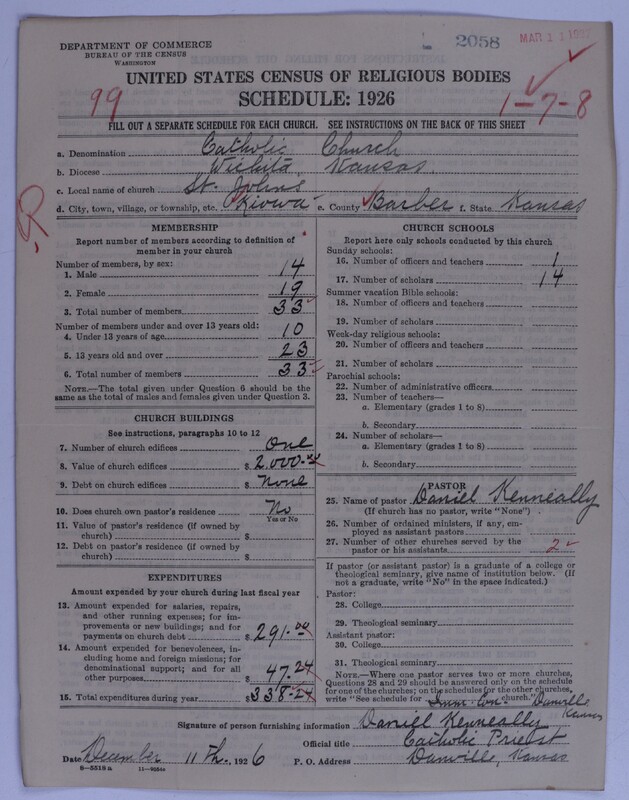 DEPARTMENT OF COMMERCE
BUREAU OF THE CENSUS
WASHINGTON
2058
MAR 11 1927
UNITED STATES CENSUS OF RELIGIOUS BODIES
SCHEDULE: 1926
99
1-7-8
FILL OUT A SEPARATE SCHEDULE FOR EACH CHURCH. SEE INSTRUCTIONS ON THE BACK OF THIS SHEET
a. Denomination Catholic Church
b. Diocese Wichita Kansas.
c. Local name of church St. John's
d. City, town, village, or township, etc. Kiowa e. County Barber f. State Kansas
MEMBERSHIP
Report number of members according to definition of
member in your church
Number of members, by sex:
1. Male 14
2. Female 19
3. Total number of members 33
Number of members under and over 13 years old:
4. Under 13 years of age 10
5. 13 years old and over 23
6. Total number of members 33
NOTE.—The total given under Question 6 should be
same as the total of males and females given under Question 3.
CHURCH BUILDINGS
See instructions, paragraphs 10 to 12
7. Number of church edifices One
8. Value of church edifices $ 2,000.00
9. Debt on church edifices $ None
10. Does church own pastor's residence No
Yes or No
11. Value of pastor's residence (if owned by
church) $
12. Debt on pastor's residence (if owned by
church) $
EXPENDITURES
Amount expended by your church during last fiscal year
13. Amount expended for salaries, repairs,
and other running expenses; for im-
provements or new buildings; and for
payments on church debt $ 291.00
14. Amount expended for benevolences, in-
cluding home and foreign missions; for
denominational support; and for all
other purposes $ 47.24
15. Total expenditures during year $ 338.24
CHURCH SCHOOLS
Report here only schools conducted by this church
Sunday schools:
16. Number of officers and teachers 1
17. Number of scholars 14
Summer vacation Bible schools:
18. Number of officers and teachers
19. Number of scholars
Week-day religious schools:
20. Number of officers and teachers
21. Number of scholars
Parochial schools:
22. Number of administrative officers
23. Number of teachers—
a. Elementary (grades 1 to 8)
b. Secondary
24. Number of scholars—
a. Elementary (grades 1 to 8)
b. Secondary
PASTOR
25. Name of pastor Daniel Kenneally
(If church has no pastor, write "None")
26. Number of ordained ministers, if any, em-
ployed as assistant pastors
27. Number of other churches served by the
pastor or his assistants 2
If pastor (or assistant pastor) is a graduate of a college or
theological seminary, give name of institution below. (If
not a graduate, write "No" in the space indicated.)
Pastor:
28. College
29. Theological seminary
Assistant pastor:
30. College
31. Theological seminary
NOTE.—Where one pastor serves two or more churches,
Questions 28 and 29 should be answered only on the schedule
for one of the churches; on the schedules for the other churches,
write "See schedule for Imm. Con. church." Danville
Kansas
Signature of person furnishing information Daniel Kenneally
Official title Catholic Priest
Date December 11th., 1926 P. O. Address Danville, Kansas
8—5518a 11—9054a